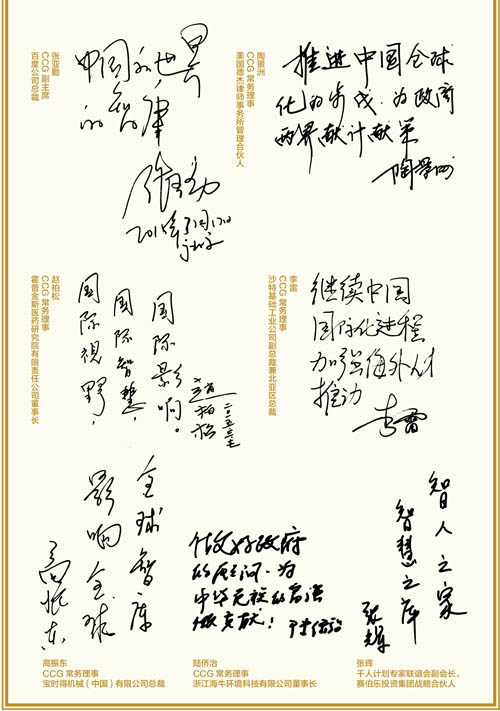 张亚勤
CCG 副主席
百度公司总裁
中国和世界
的智库
张亚勤
陶景洲
CCG 常务理事
美国德杰律师事务所管理合伙人
推进中国全球
化的步伐，为政商
两界献计献策
陶景洲
赵柏松
CCG 常务理事
霍普金斯医药研究院有限责任公司董事长
国际视野，
国际智慧，
国际影响。
赵柏松
李雷
CCG 常务理事
沙特基础工业公司副总裁兼北亚区总裁
继续中国
国际化进程
加强海外人才
推动
李雷
全球智库
影响全球
高振东
高振东
CCG 常务理事
宝时得机械（中国）有限公司总裁
做好政府
的顾问，为
中华
做贡献！
陆侨治
陆侨治
CCG 常务理事
浙江海牛环境科技有限公司董事长
智人之家
智慧之库
张辉
张辉
千人计划专家联谊会副会长、
赛伯乐投资集团战略合伙人